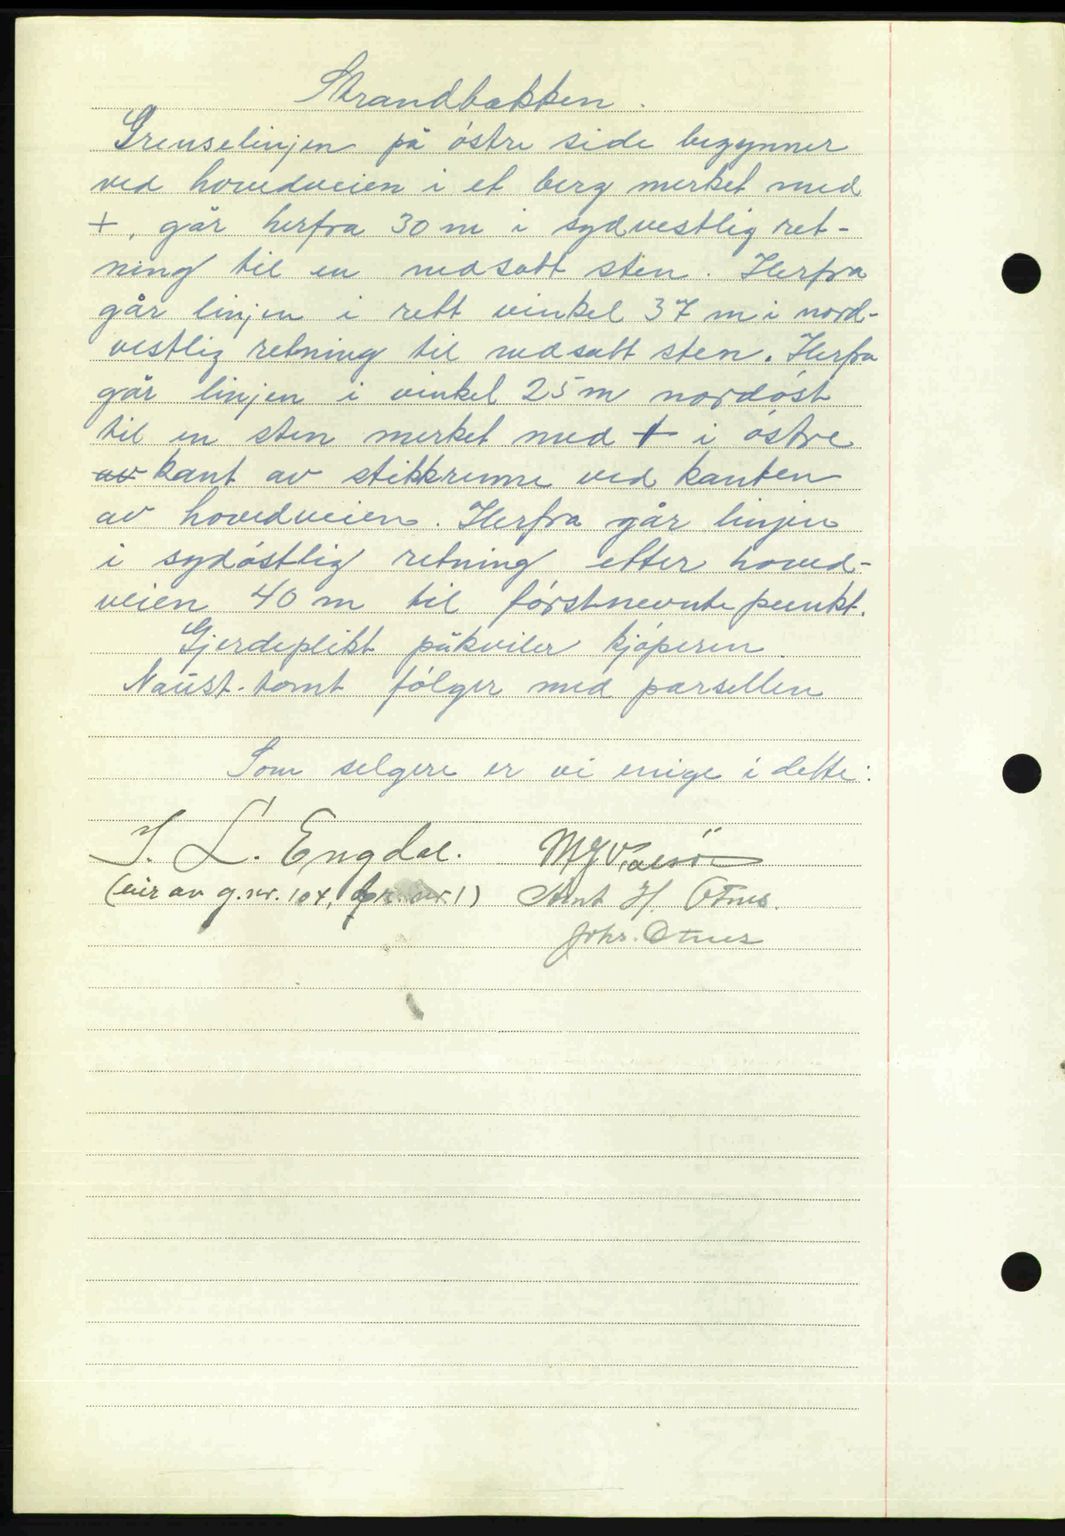 Strandbakken.
Grenselinjen på östre side begynner
ved hovedveien i et berg merket med
+, går herfra 30 m i sydvestlig ret-
ning til en nedsatt sten. Herfra
går linjen i rett vinkel 37 m i nord-
vestlig retning til nedsatt sten. Herfra
går linjen i vinkel 25 m nordöst
til en sten merket med + i östre
av kant av stikkrenne ved kanten
av hovedveien. Herfra går linjen
i sydöstlig retning etter hoved-
veien 40 m til förstnevnte punkt.
Gjerdeplikt påkviler kjöperen.
Naust-tomt fölger med parsellen
Som selgere er vi enige i dette:
L. Engdal. Valsö
(eier av g.nr. 104, br.nr. 1) Arnt H. Otnes.
Johs. Otnes